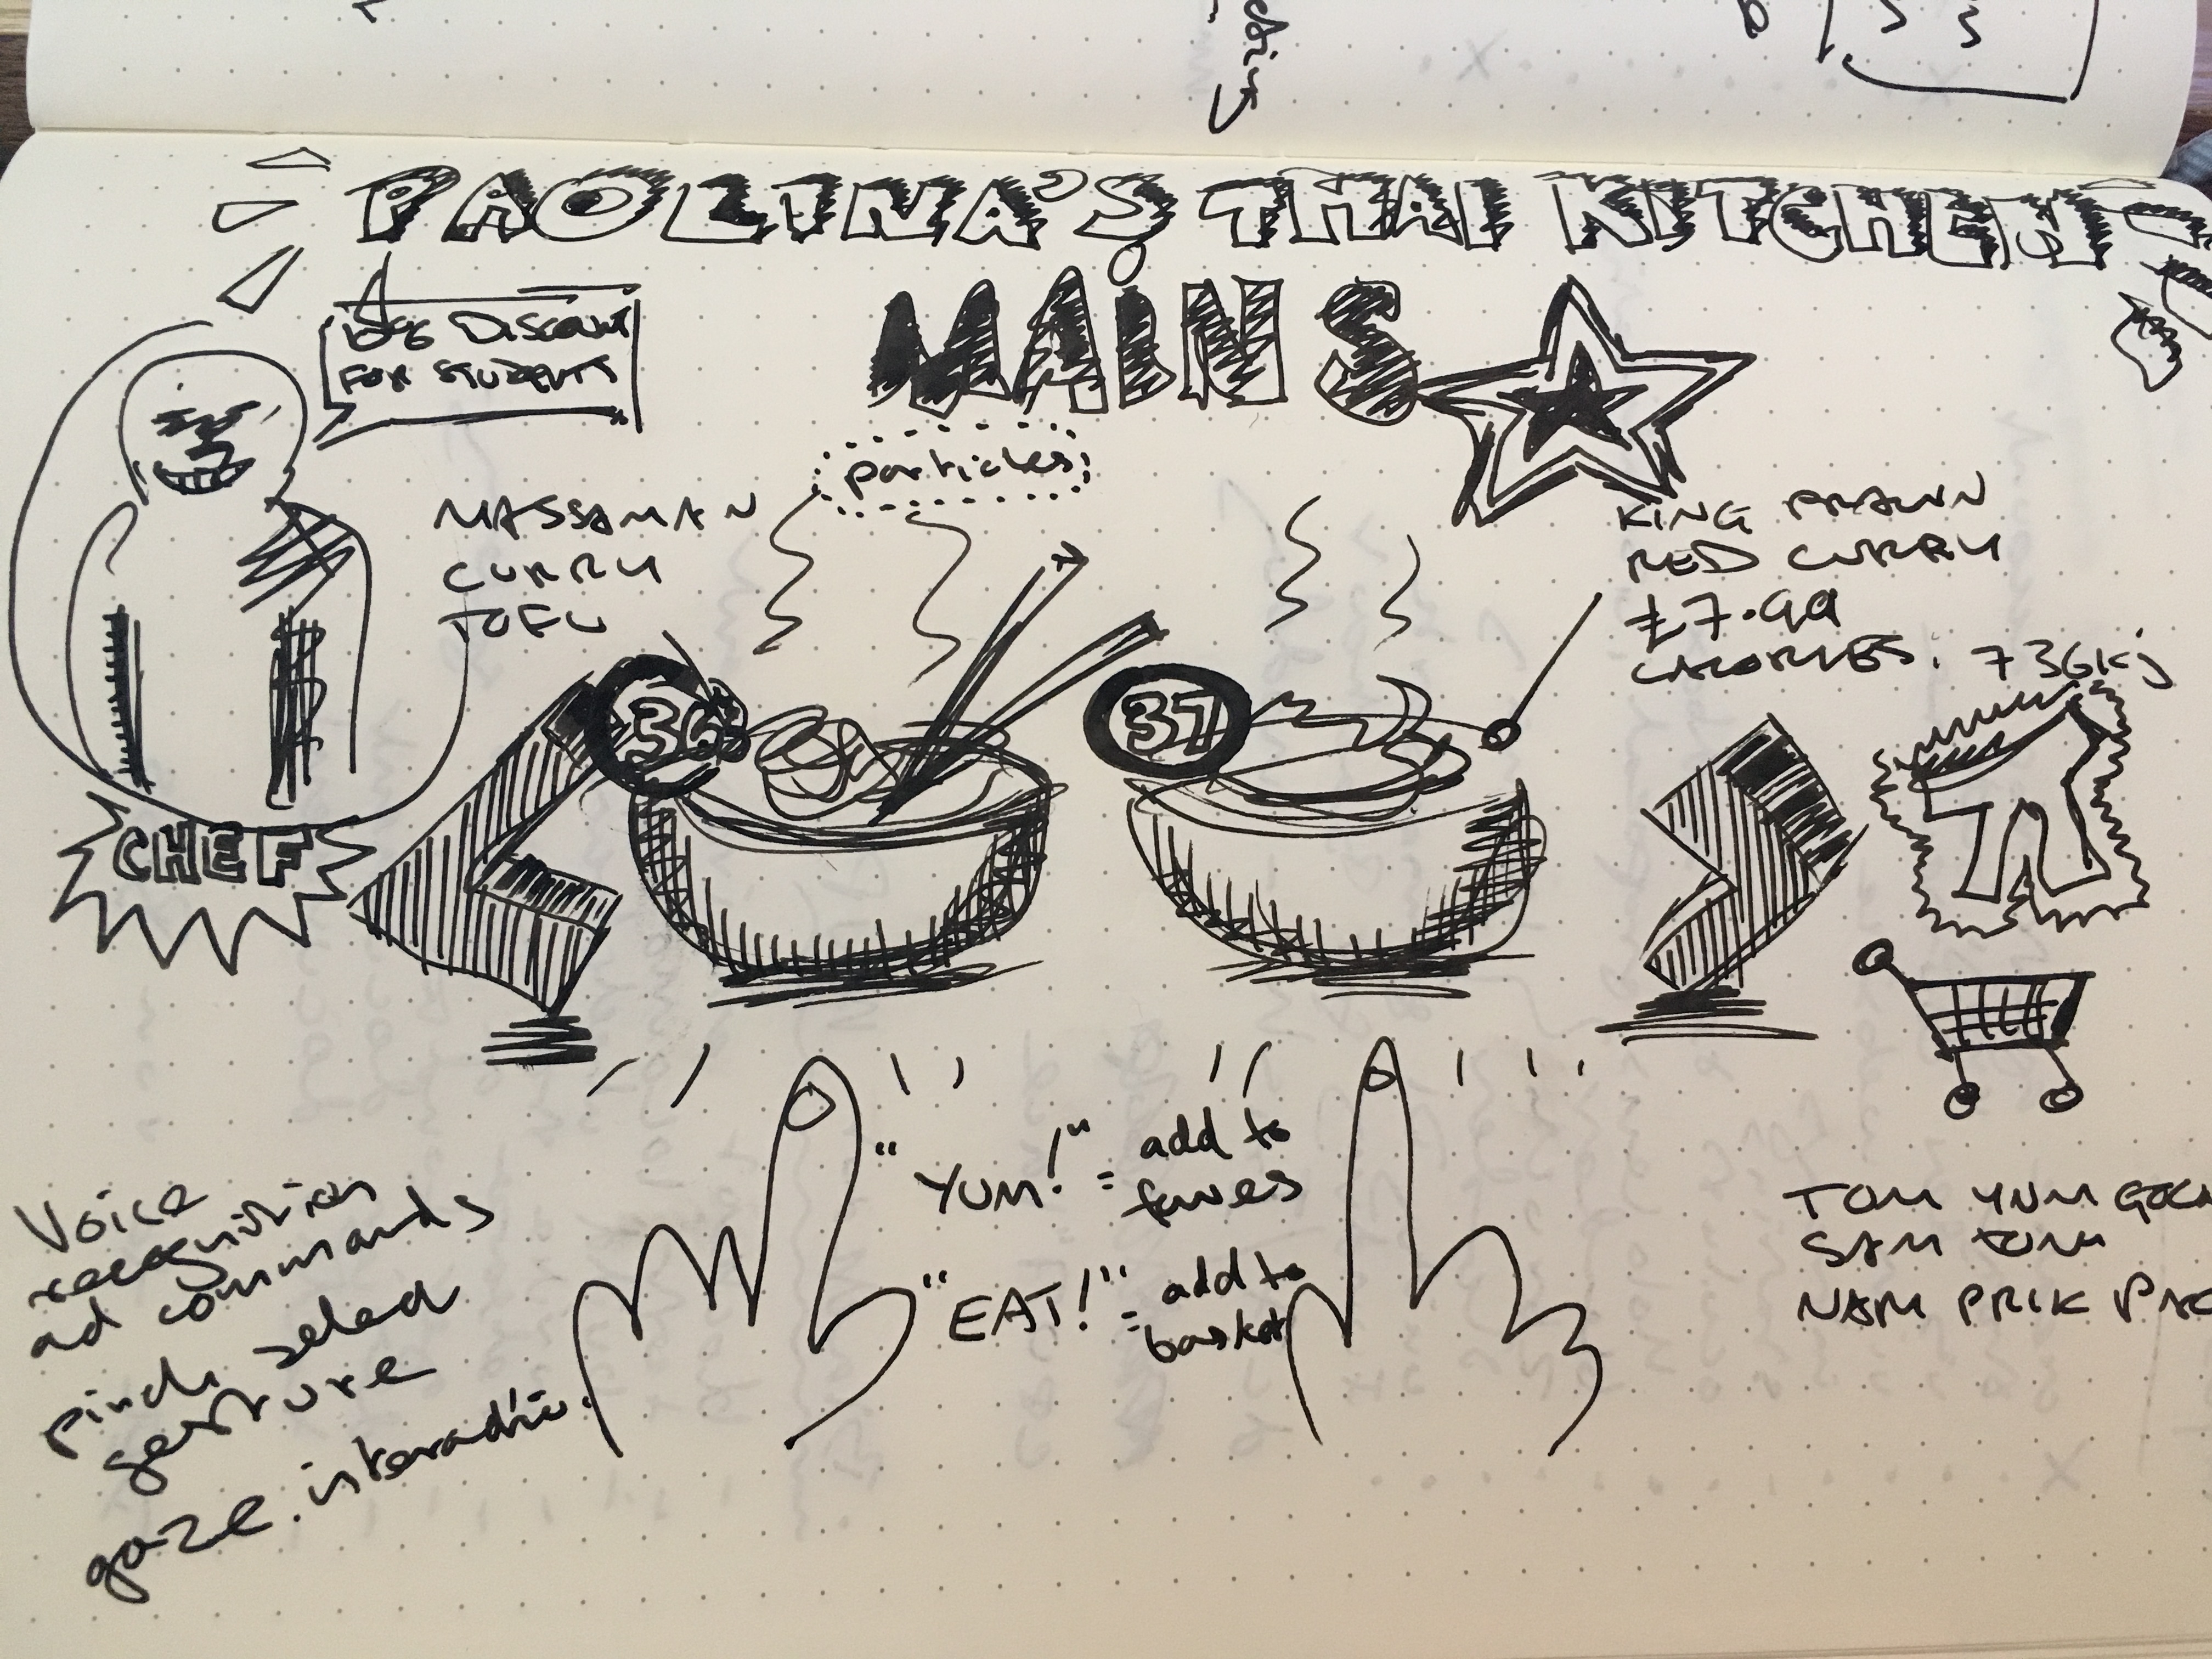 PAOLINA'S THAI KITCHEN
MAINS
FOR STUDENTS
particles
MASSAMAN
CURRY
TOFU
KING PRAWN
RED CURRY
£7.99
CALORIES: 736KJ
36
37
CHEF
"YUM!" = add to
faves
"EAT!" = add to
basket
Voice
recognition
ad commands
pinch select
gesture
gaze.interaction.
TOM YUM
SAM TOM
NAM PRIK